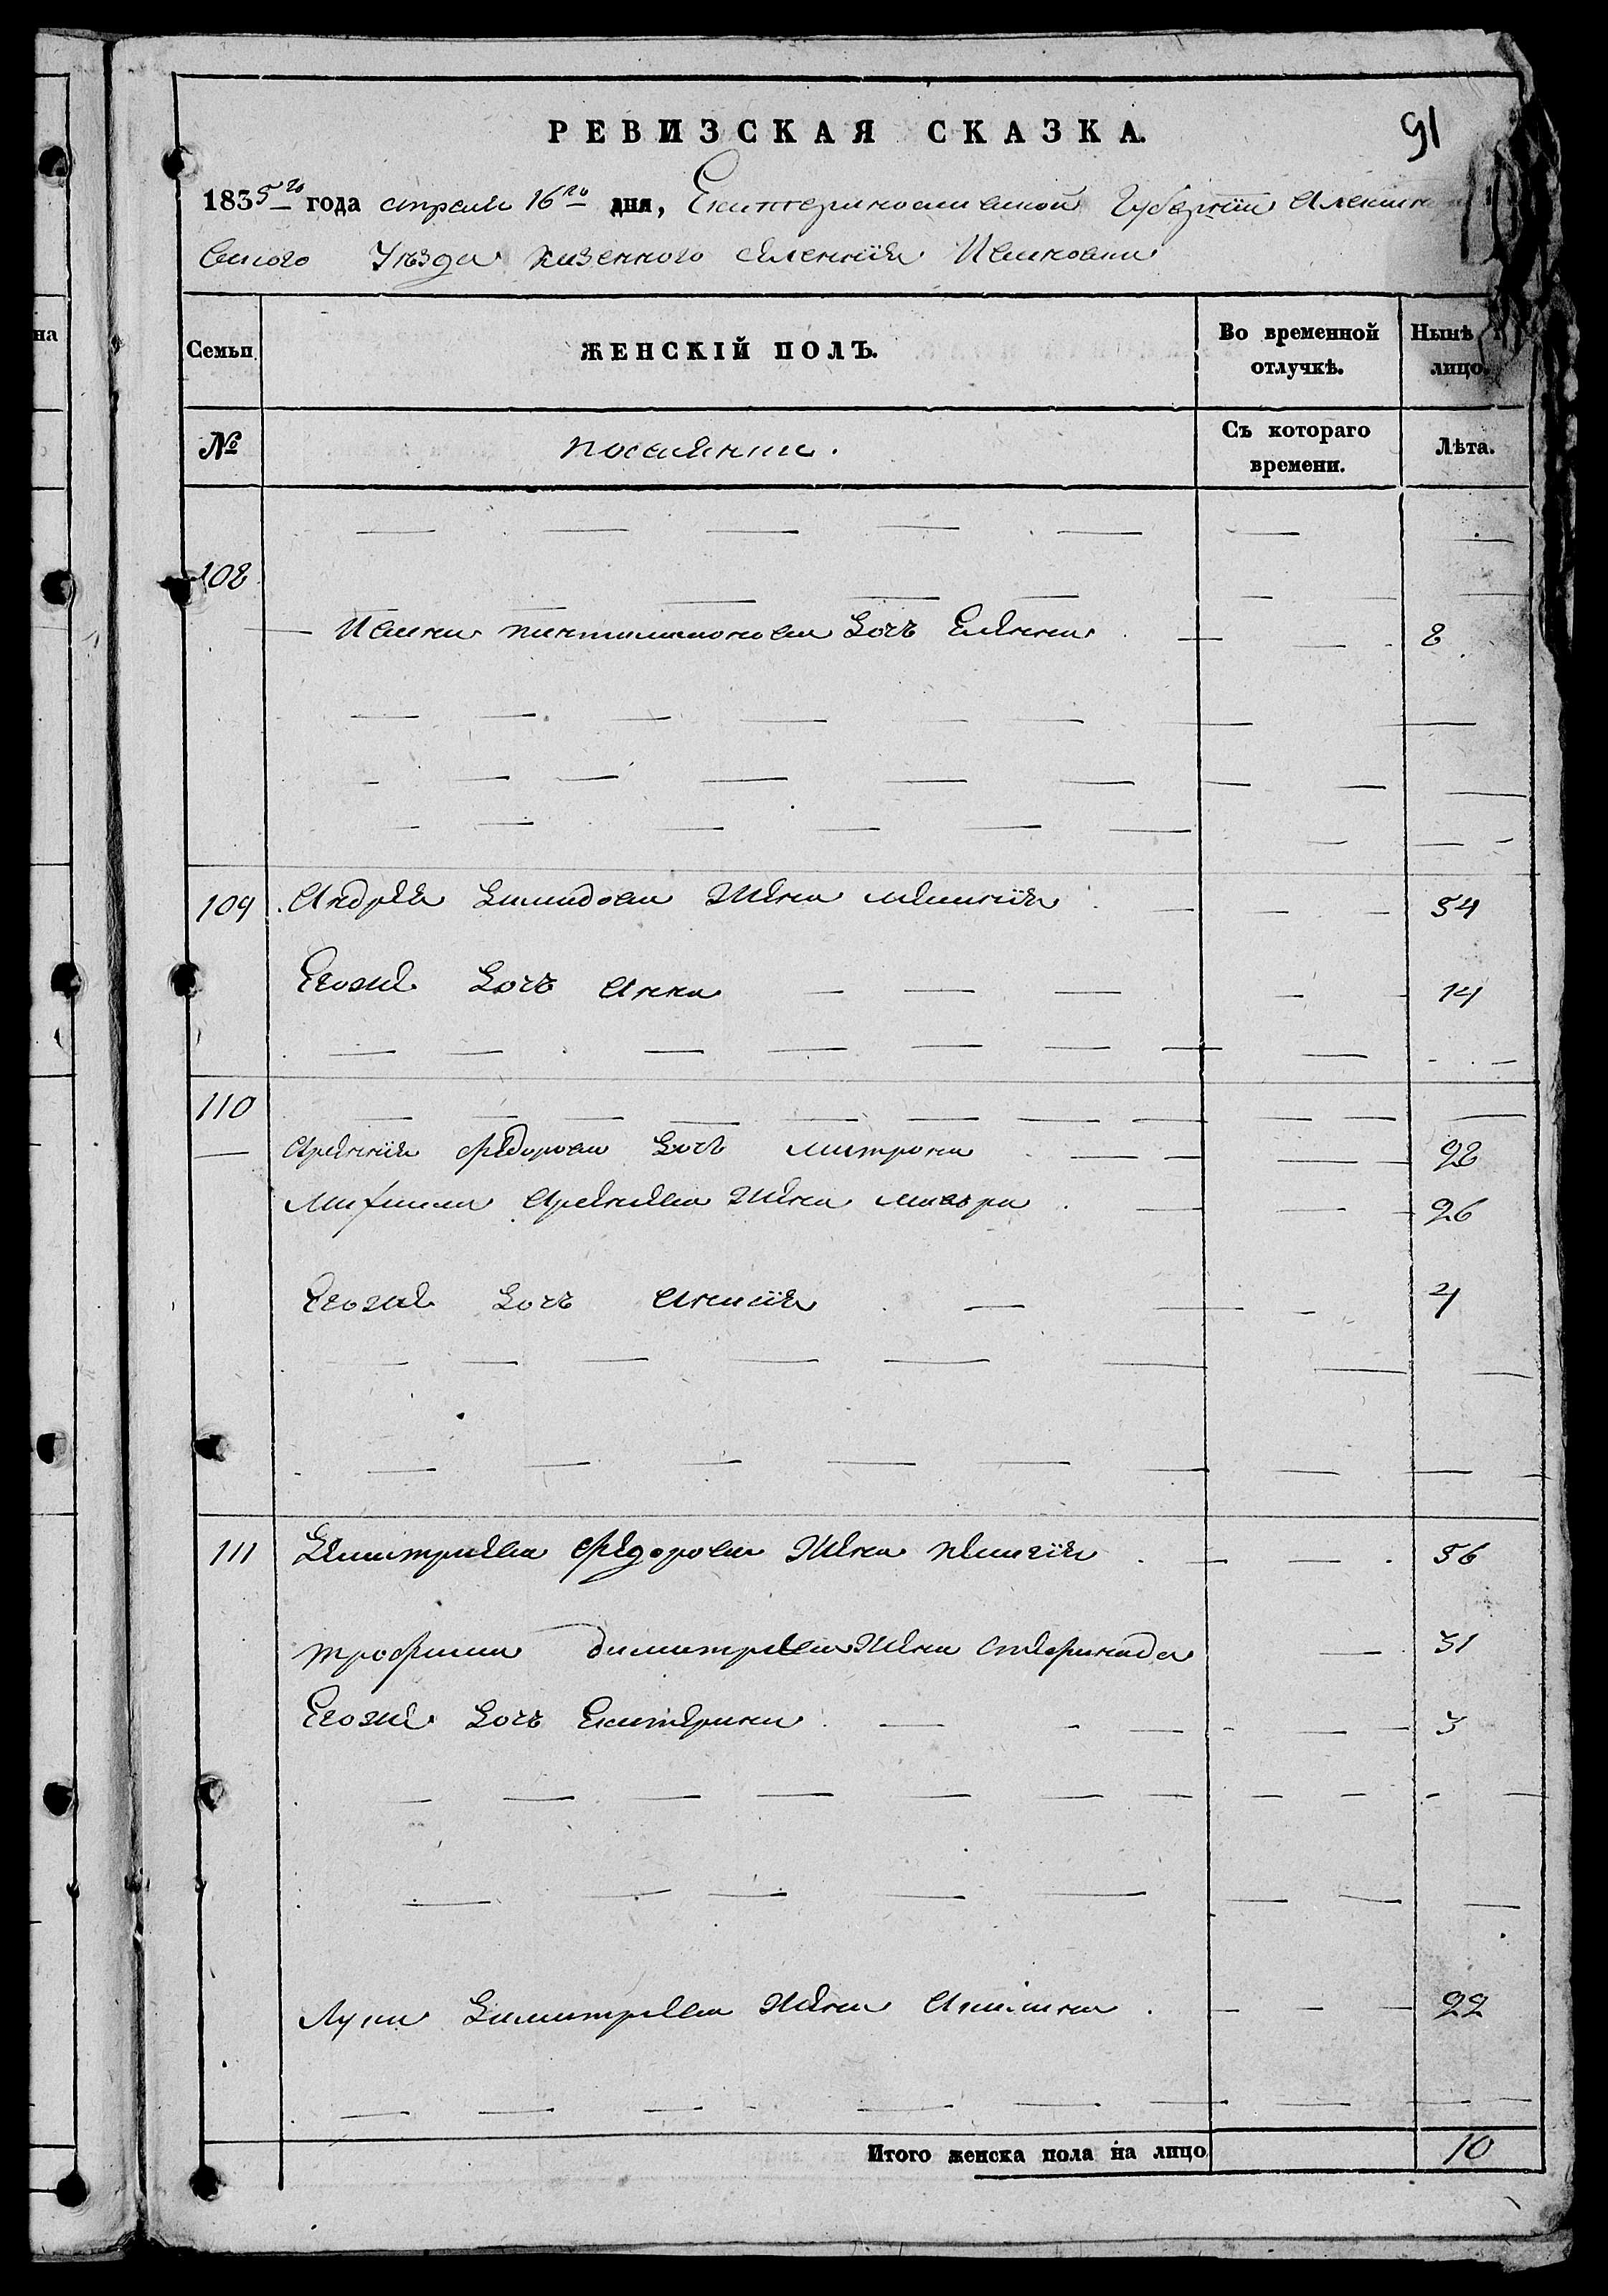 на
РЕВИЗСКАЯ СКАЗКА.
91
1835го года апреля 16го дня, Екатеринославской Губернїи Александров
ского Уезда казенного селенїя Ивановки
Семьи
ЖЕНСКІЙ ПОЛЪ.
Во временной отлучкѣ.
Нынѣ на лицо.
№
поселянин.
Съ котораго времени.
Лѣта.
108
Ивана дочъ Еленна 8
109 Андрея Димидова Жена 54
Егоже дочъ Анна 14
110
Арсения Федорова дочъ Матрона 28
Михаила Жена 26
Егоже дочъ 4
111 Димитриева Федорова Жена 56
трофима димитрева Жена Стефанида 31
Егоже дочъ Екатерина 3
Луки Димитрева Жена 22
Итого женска пола на лицо 10